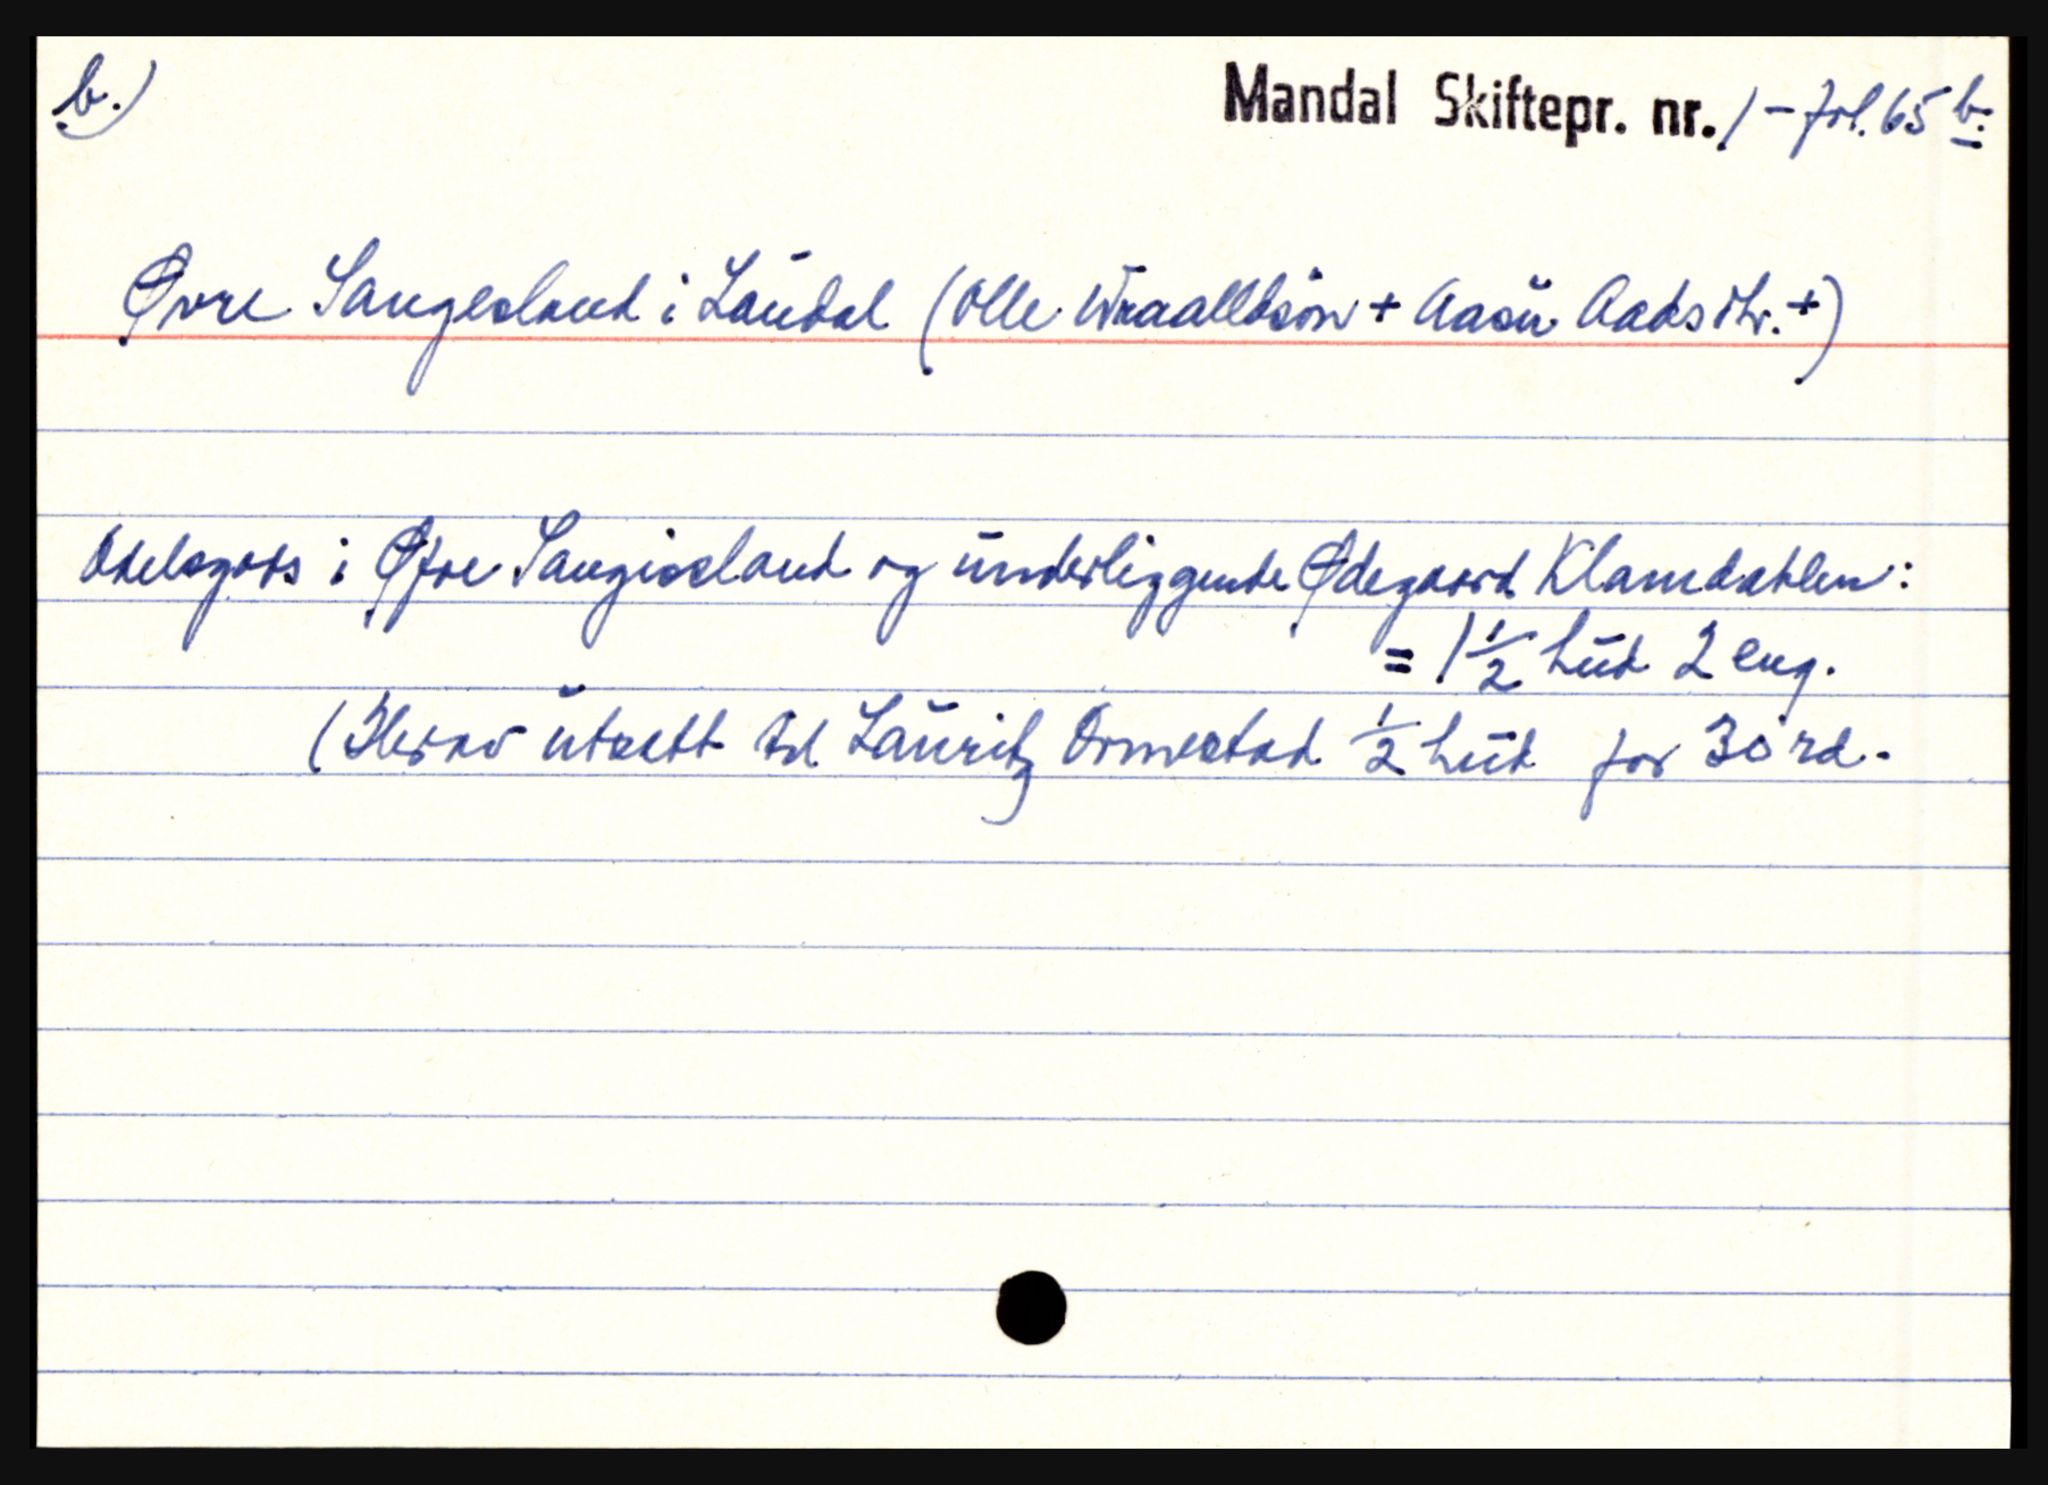 b.)
Mandal Skiftepr. nr. 1 - fol. 65 b.
Øvre Saugesland i Laudal (Olle Wraalldsön + Aasu Aadsdtr. +)
Odelsgods i Øfre Saugiesland og underliggende Ødegaard Klamdahlen:
= 1 1/2 hud 2 eng.
(Herav utsatt til Lauritz Ormestad 1/2 hud for 30 rd.